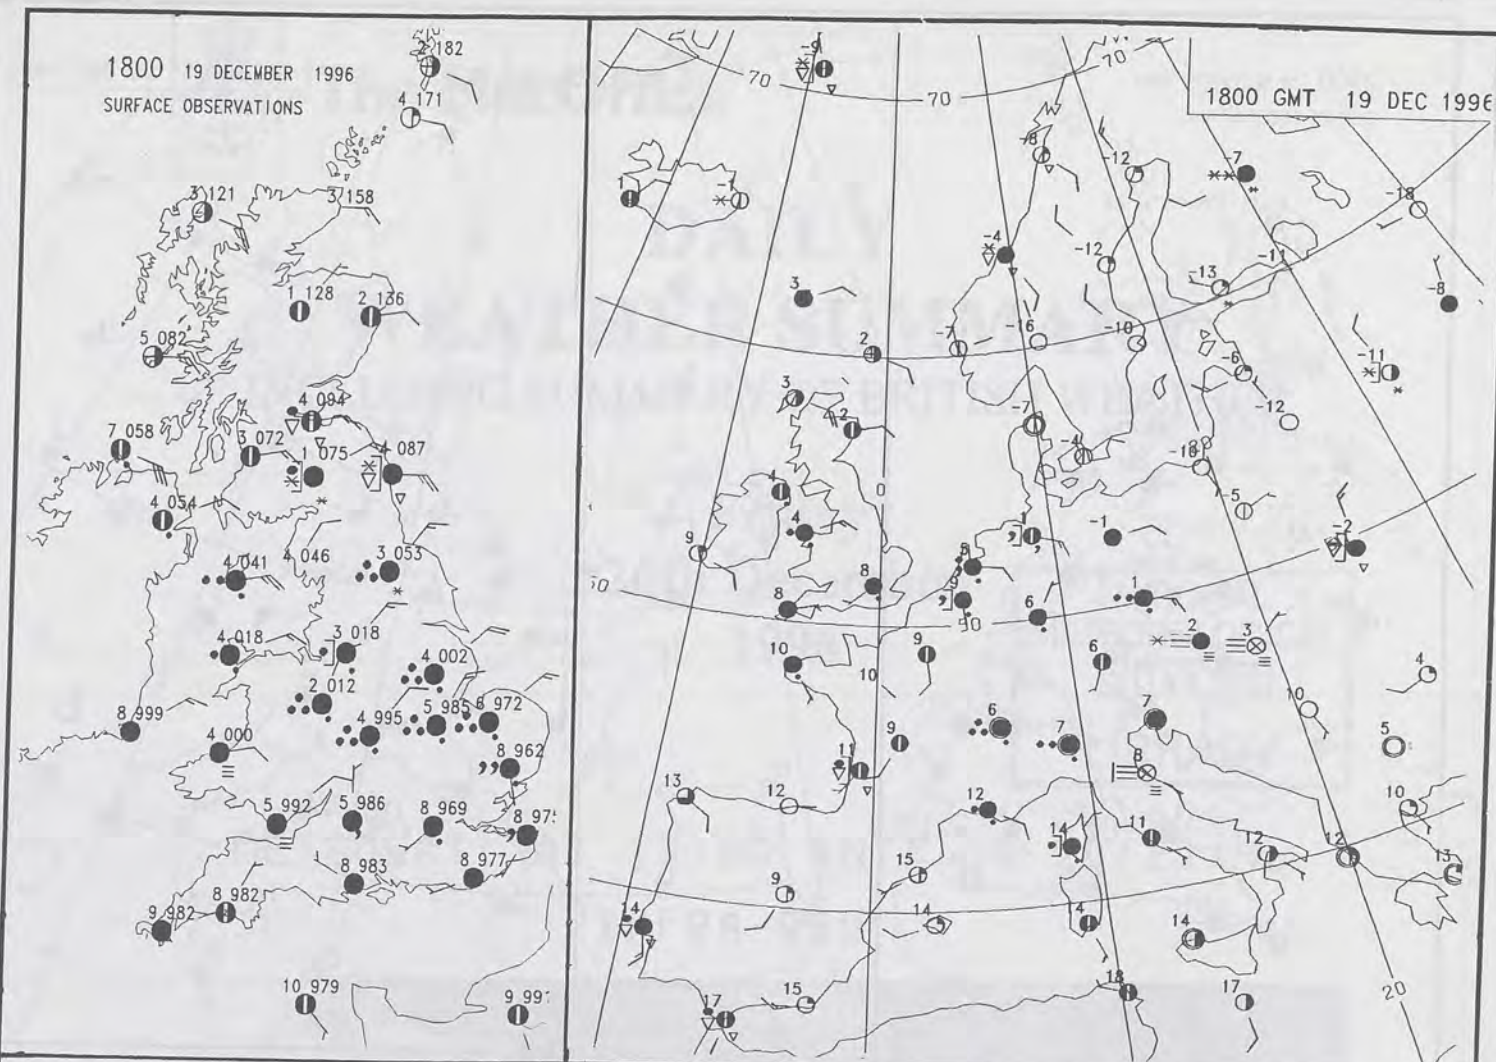 1800 19 DECEMBER 1996
SURFACE OBSERVATIONS
2 182
4 171
3 121
3 158
1 128
2 136
5 082
4 094
7 058
3 072
1 075
4 087
4 054
4 046
4 041
3 053
4 018
3 018
4 002
2 012
5 985
8 972
8 999
4 995
4 000
8 962
5 992
5 986
8 969
8 975
8 983
8 977
8 982
9 982
10 979
9 991
1800 GMT 19 DEC 1996
-9
70
70
70
-8
-12
-7
-18
1
-1
-4
-12
-13
-11
-8
3
2
-7
-16
-10
-6
-11
3
2
-7
-4
-10
-12
4
0
-5
4
9
1
-1
-2
8
8
9
6
1
50
50
2
3
10
9
6
4
10
10
6
7
7
5
11
9
8
13
12
12
14
11
12
12
10
13
9
15
14
14
14
14
17
15
18
17
20
DAILY
WEATHER SUMMARY